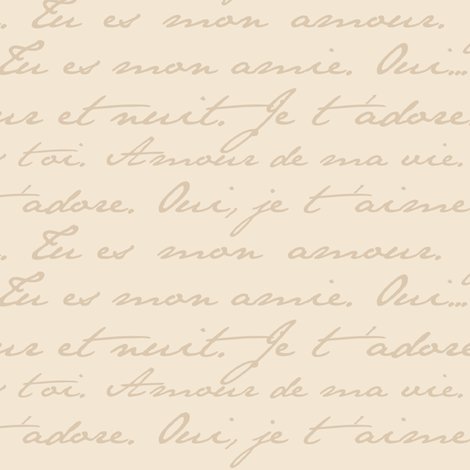 . Tu es mon amour.
Tu es mon amie. Oui...
ur et nuit. Je t'adore.
toi. Amour de ma vie.
t'adore. Oui, je t'aime
. Tu es mon amour.
Tu es mon amie. Oui...
ur et nuit. Je t'adore
toi. Amour de ma vie.
t'adore. Oui, je t'aime